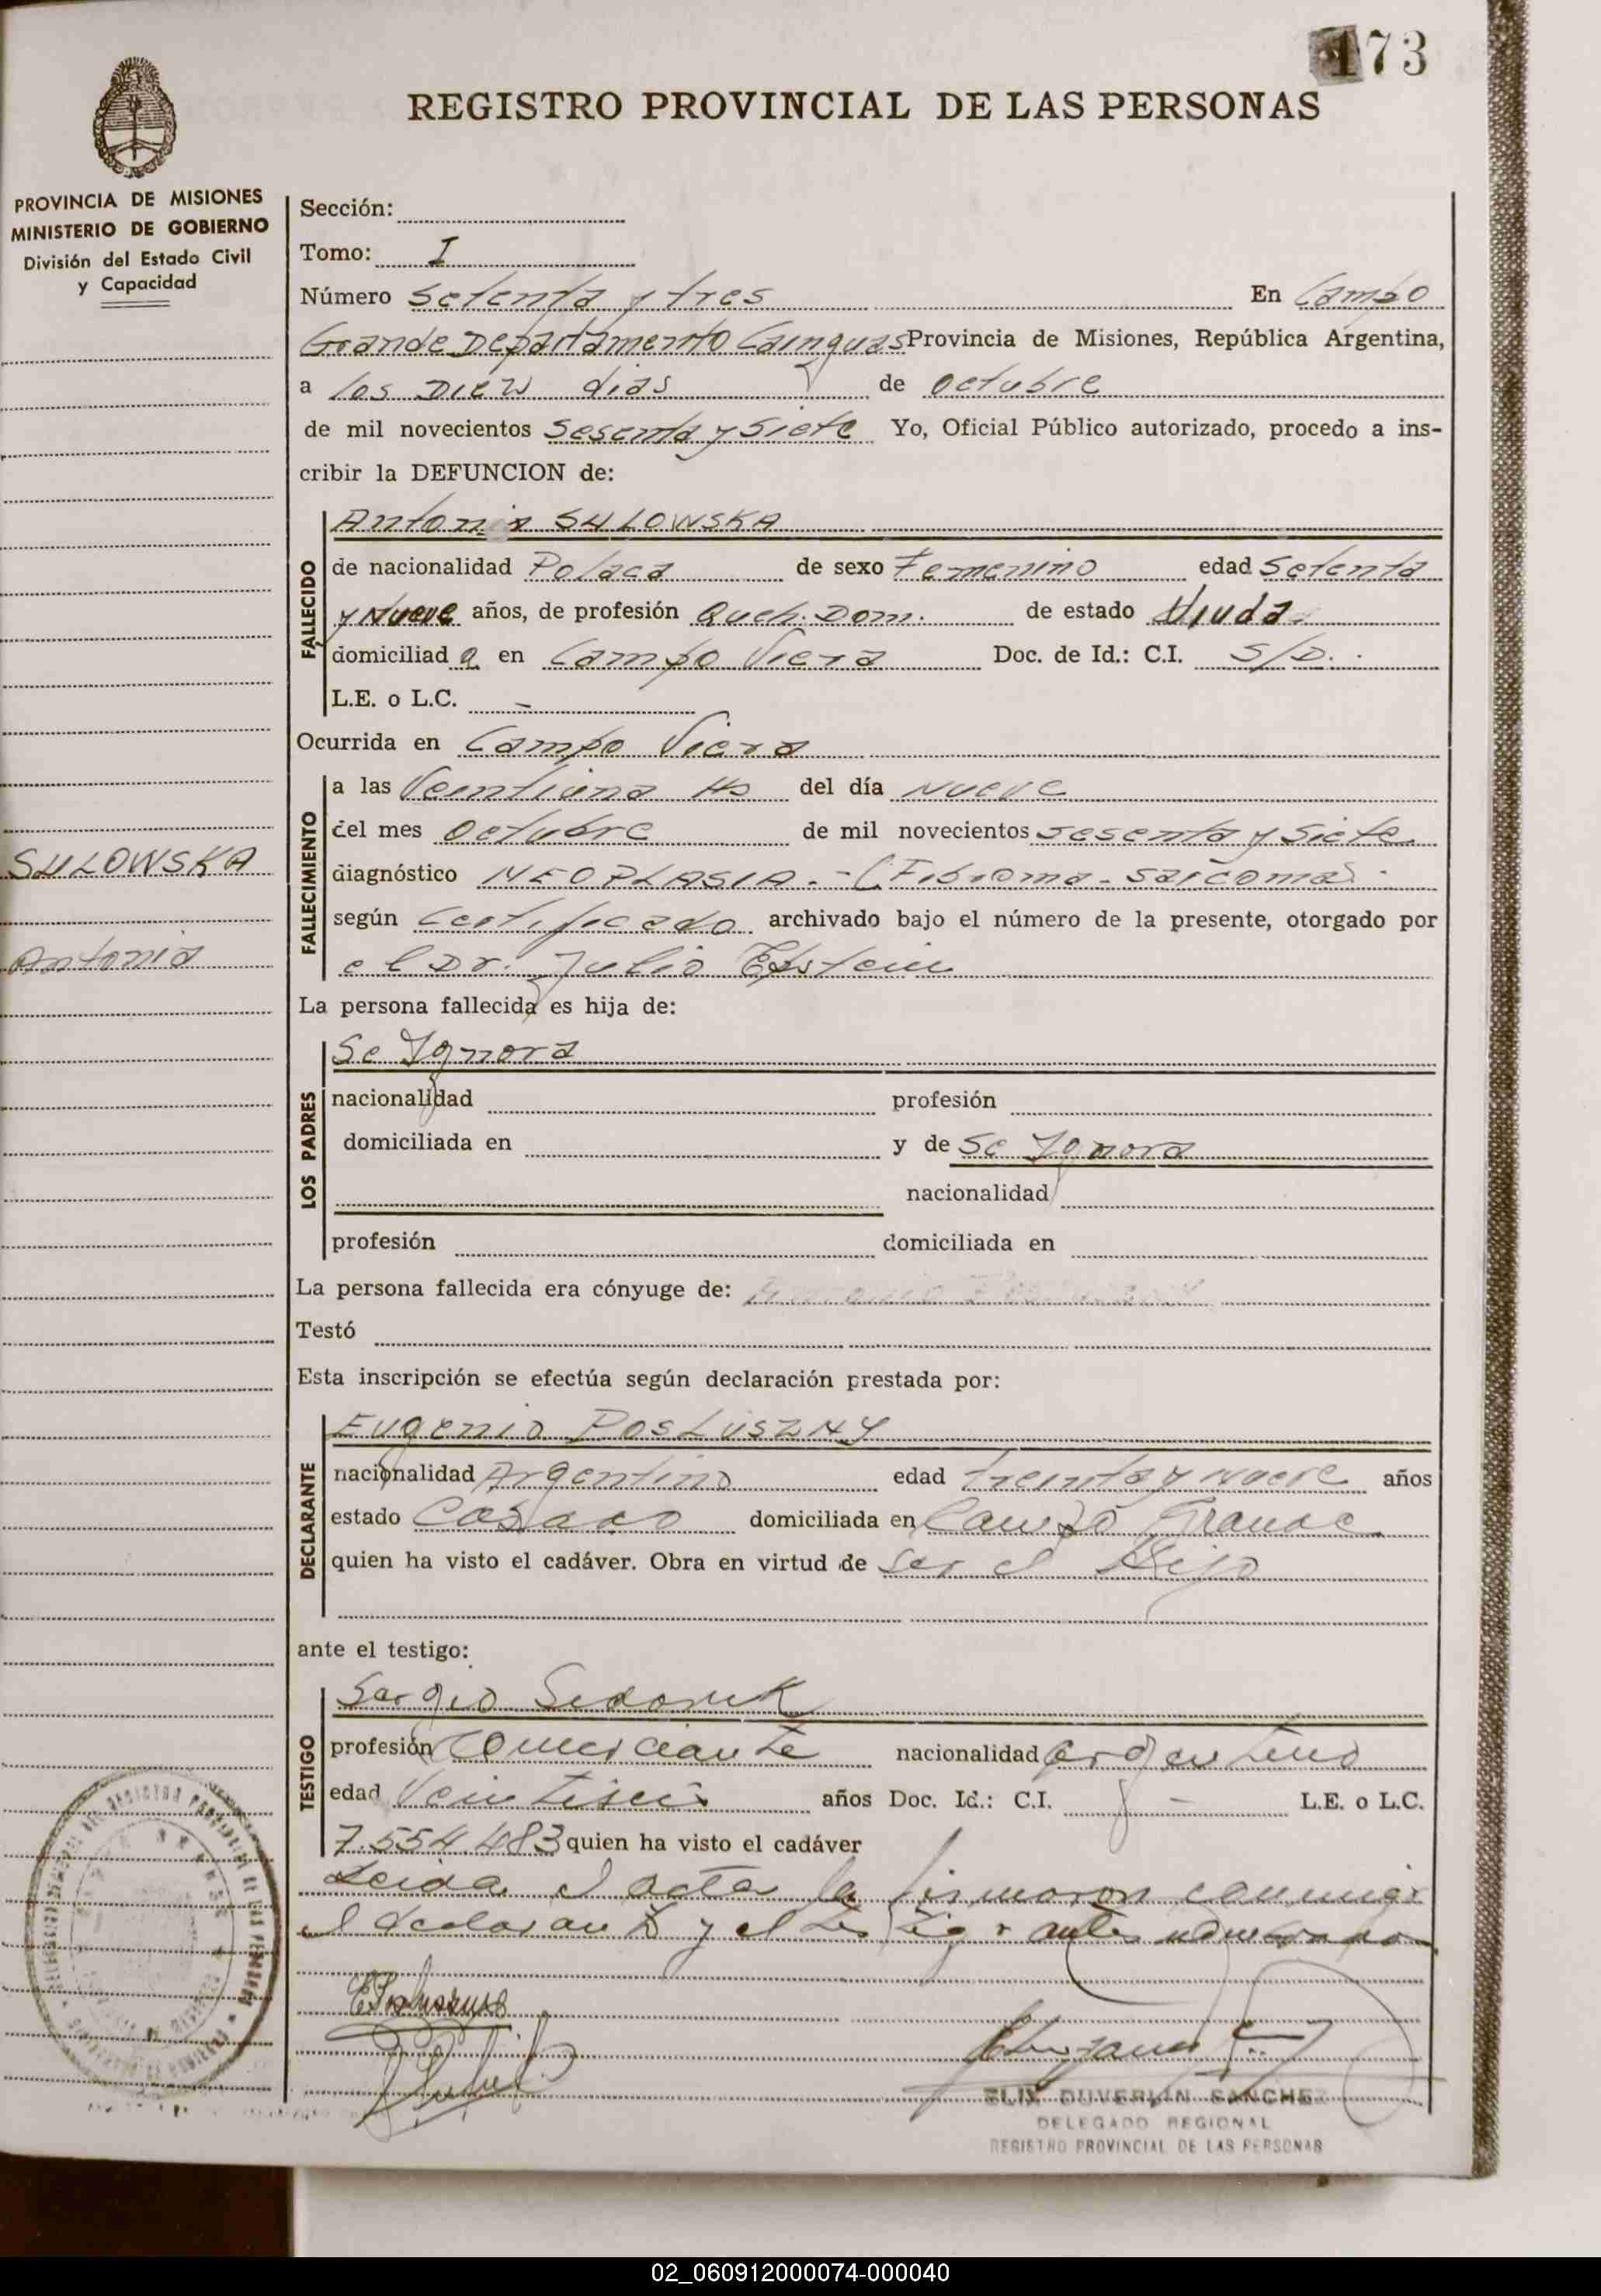 173
REGISTRO PROVINCIAL DE LAS PERSONAS
PROVINCIA DE MISIONES
MINISTERIO DE GOBIERNO
División del Estado Civil
y Capacidad
Sección:
Tomo: I
Número Setenta y tres En Campo
Grande Departamento Cainguas Provincia de Misiones, República Argentina,
a los Diez dias de Octubre
de mil novecientos Sesenta y Siete Yo, Oficial Público autorizado, procedo a ins-
cribir la DEFUNCION de:
FALLECIDO
Antonia SULOWSKA
de nacionalidad Polaca de sexo Femenino edad Setenta
y Nueve años, de profesión Queh. Dom. de estado Viuda
domiciliad a en Campo Viera Doc. de Id.: C.I. S/D.
L.E. o L.C. -
Ocurrida en Campo Viera
FALLECIMIENTO
a las Veintiuna Hs del día Nueve
del mes Octubre de mil novecientos sesenta y Siete
SULOWSKA
diagnóstico NEOPLASIA.-(Fibroma-sarcoma).
según Certificado archivado bajo el número de la presente, otorgado por
Antonia
el Dr. Julio Epstein
La persona fallecida es hija de:
LOS PADRES
Se Ignora
nacionalidad profesión
domiciliada en y de Se Ignora
nacionalidad
profesión domiciliada en
La persona fallecida era cónyuge de:
Testó
Esta inscripción se efectúa según declaración prestada por:
DECLARANTE
Eugenio POSLUSZNY
nacionalidad Argentino edad treinta y nueve años
estado Casado domiciliada en Campo Grande
quien ha visto el cadáver. Obra en virtud de ser el Hijo
ante el testigo:
TESTIGO
Sergio Sedorik
profesión Comerciante nacionalidad argentino
edad años Doc. Id.: C.I. - L.E. o L.C.
7.554.483 quien ha visto el cadáver
Leida el acta la firmaron conmigo
el declarante y el testigo antes nombrado
ELIX DUVERLIN SANCHEZ
DELEGADO REGIONAL
REGISTRO PROVINCIAL DE LAS PERSONAS
02_060912000074-000040